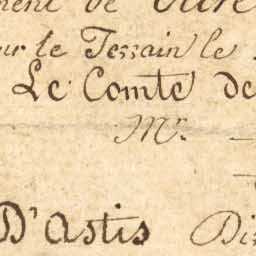 ment de
ur le Tessain le
Le Comte de
Mr.
D'Astis Di